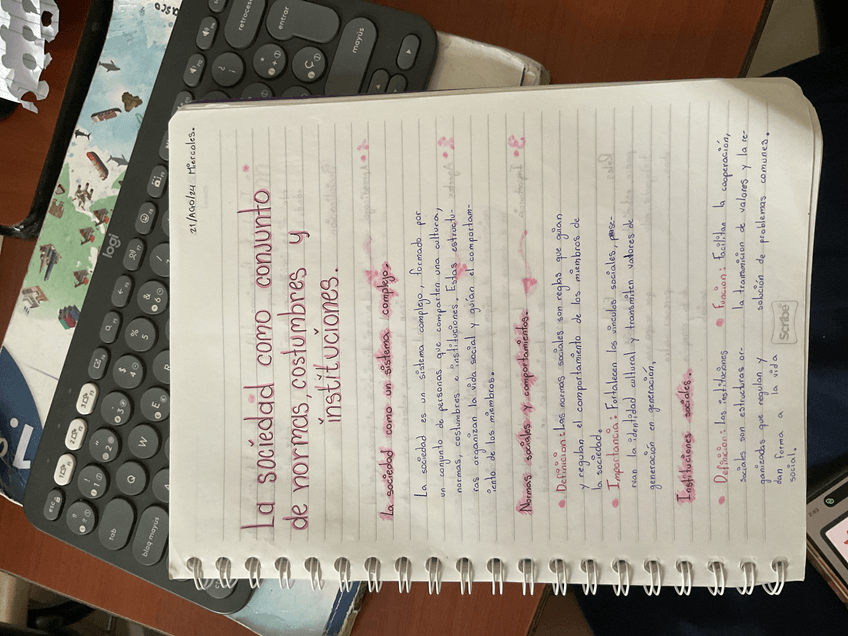 21/AGO/24 Miercoles.
La sociedad como conjunto
de normas, costumbres y
instituciones.
La sociedad como un sistema complejo.
La sociedad es un sistema complejo, formado por
un conjunto de personas que comparten una cultura,
normas, costumbres e instituciones. Estas estructu-
ras organizan la vida social y guían el comportam-
iento de los miembros.
Normas sociales y comportamientos.
• Definición: Las normas sociales son reglas que guían
y regulan el comportamiento de los miembros de
la sociedad.
• Importancia: Fortalecen los vínculos sociales, prese-
rvan la identidad cultural y transmiten valores de
generación en generación.
Instituciones sociales.
• Definición: Las instituciones
sociales son estructuras or-
ganizadas que regulan y
dan forma a la vida
social.
• Función: Facilitan la cooperación,
la transmición de valores y la re-
solución de problemas comunes.
Scribe
logi
retroceso
entrar
mayús
esc
tab
bloq mayús
Q
W
E
R
A